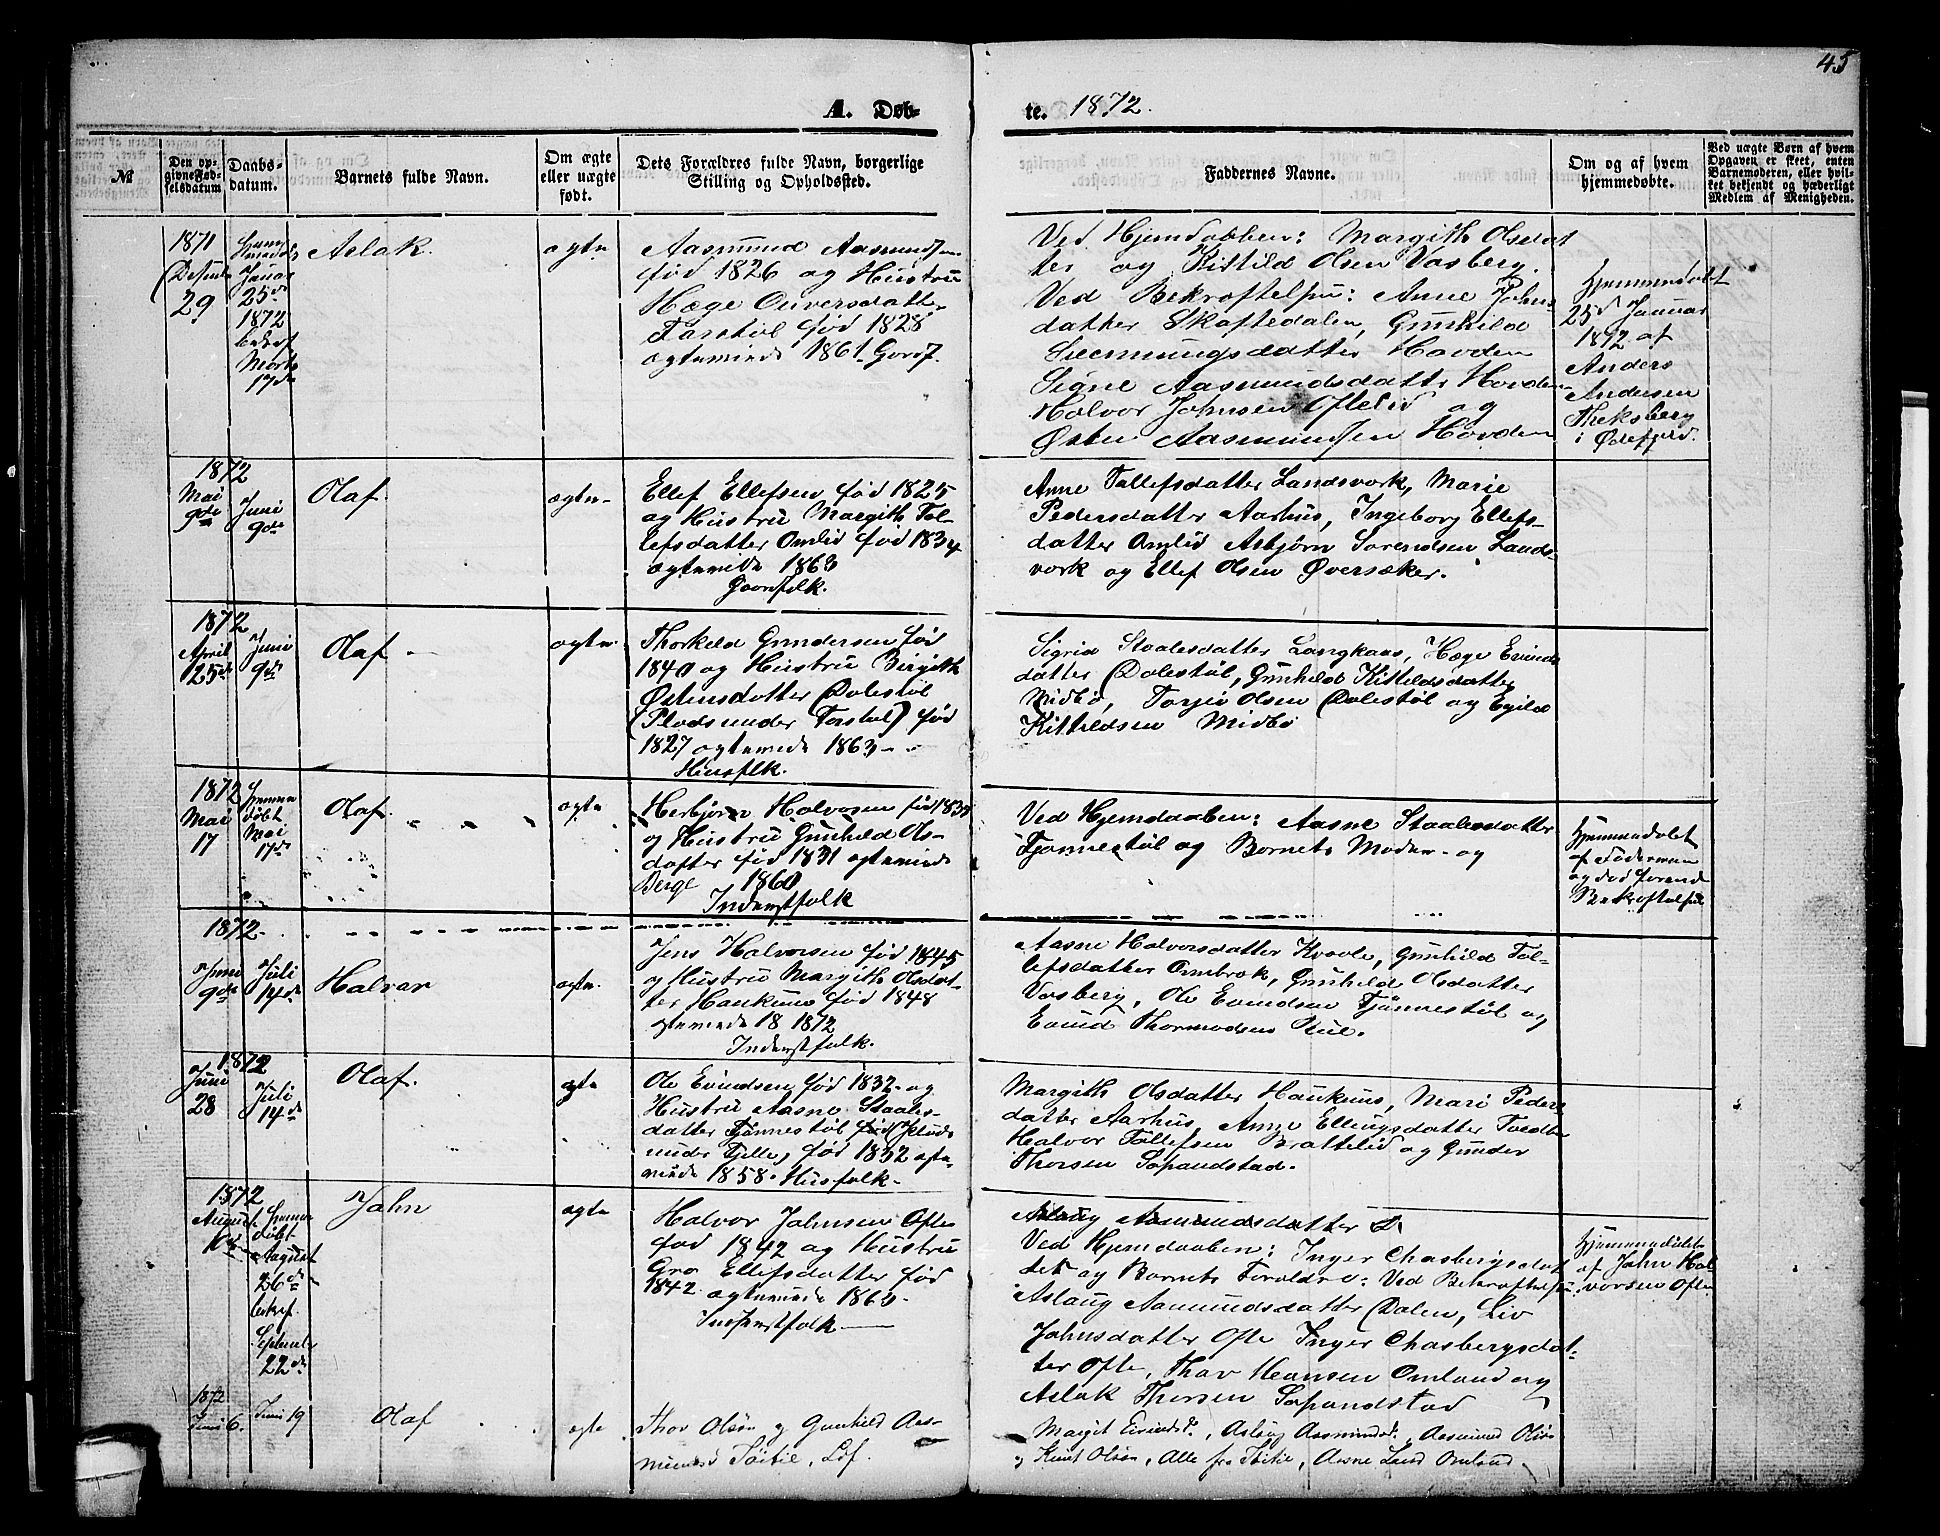 45
A. Døb-
te. 1872.
№
Den op-
givne Fød-
selsdatum
Daabs-
datum.
Barnets fulde Navn.
Om ægte
eller uægte
født.
Dets Forældres fulde Navn, borgerlige
Stilling og Opholdssted.
Faddernes Navne.
Om og af hvem
hjemmedøbte.
Ved uægte Børn af hvem
Opgaven er skeet, enten
Barnemoderen, eller hvil-
ket bekjendt og hæderligt
Medlem af Menigheden.
1871
29
Januar
25de
1872
bekræf
Marts
17de
Aslak.
ægte
Aasmund Aasmundsen
fød 1826 og Hustru
Hæge Ouversdatter
Torstøl fød 1828
ægteviede 1861. Gordf.
Ved Hjemdaaben: Margith Olsdat
ter og Kittild Olsen Vasberg.
Ved Bekræftelsen: Anne Johns
datter Skaftedalen, Gunhild
datter Hovden
Signe Aasmundsdatter Hovden
Halvor Johnsen Oftelid og
Østen Aasmundsen Hovden
Hjemmedøbt
25d Januar
1872 af
Anders
Andersen
Theksberg
i
1872
Mai
9de
Juni
9de
Olaf.
ægte
Ellef Ellefsen fød 1825
og Hustru Margith Tol-
lefsdatter Omlid fød 1834
ægteviede 1863
Gaardfolk.
Anne Tollefsdatter Landsverk, Marie
Pedersdatter Aarhus, Ingeborg Ellefs-
datter Omlid Asbjørn Sorendsen Lands-
verk og Ellef Olsen Øversæker.
1872
April
25de
Juni
9de
Olaf
ægte
Thorkild Gundersen fød
1840 og Hustru Birgith
Østensdatter Dalestøl
(Plads under Torstøl) fød
1827 ægteviede 1863
Husfolk.
Sigrid Staalesdatter Langkaas, Hæge Evinds
datter Dalestøl, Gunhild Kittildsdatter
Midbø, Torjer Olsen Dalestøl og Egild
Kittildsen Midbø
1872
Mai
17
Hjemme
døbt
Mai
17de
Olaf.
ægte
Herbjørn Halvorsen fød 1838
og Hustru Gunhild Ols-
datter fød 1831 ægteviede
Berge 1860
Inderstfolk
Ved Hjemdaaben: Aasne Staalesdatter
Tjønnestøl og Barnets Moder - og
Hjemmedøbt
af Jodermoer
og død forinden
Bekræftelsen
1872.
Juni
9de
Juli
14de
Halvor
ægte
Jens Halvorsen fød 1845
og Hustru Margith Olsdat
ter Haukum fød 1848
ægteviede 18 1872
Inderstfolk.
Aasne Halvorsdatter Kvaale, Gunhild Tol-
lefsdatter Ormbrek, Gunhild Olsdatter
Vasberg, Ole Evindsen Tjønnestøl og
Evind Thormodsen
1872
Juni
28
Juli
14de
Olaf.
ægte
Ole Evindsen fød 1832 og
Hustru Aasne Staales-
datter Tjønnestøl fød Plads
under Fjelle, fød 1832 ægte-
viede 1858. Husfolk
Margith Olsdatter Haukum, Mari Peders
datter Aarhus, Anne Ellingsdatter Tvedte
Halvor Tollefsen Brattelid og Gunder
Thorsen Sopandstad.
1872
August
Hjemme
døbt
August
26de
bekræf.
September
22de
John
ægte
Halvor Johnsen Ofte
fød 1842 og Hustru
Gro Ellefsdatter fød
1842. ægteviede 1863.
Inderstfolk
Aslaug Aasmundsdatter D
Ved Hjemdaaben: Inger Chasbergsdat
ter og Barnets Forældre: Ved Bekræftelsen:
Aslaug Aasmundsdatter Dalen, Liv
Johnsdatter Ofte Inger Chasbergsdat-
ter Ofte, Thor Hansen Omlund og
Aslak Thorsen Sopandstad
Hjemmedøbt
af John Hal
vorsen Ofte
1872
Juni 6.
Juni 19
Olaf
ægte
Thor Olsøn og Gunhild Aas-
mundsd Töitie, Lof.
Margit Eivindsd., Aslaug Aasmundsd., Aasmund Olsøn
og Knut Olsøn, Alle fra Töitie, Aasne Omlund.